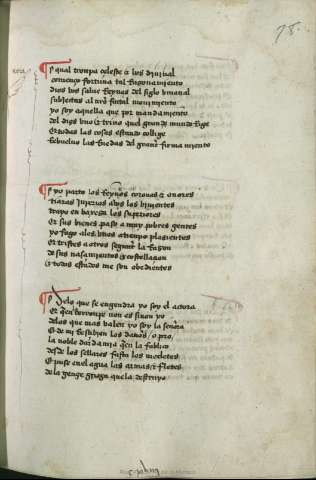 78.
qual trompa celeste & boz diuinal
començo fortuna tal razonamiento
dios vos salue Reynas del siglo vmanal
subiectas al nro fatal mouimiento
yo soy aquella que por mandamiento
del dios vno & trino quel grand mundo Rige
Et todas las cosas estando collige
Rebueluo las Ruedas del grand firmamiento
yo parto los Reynos coronas & onores
tiaras Inperios a los biuientes
trayo en baxesa los superiores
Et sus bienes paso a muy pobres gentes
yo fago a los vnos a tiempo plasientes
Et tristes a otros segunt la Razon
de sus nasçimientos & costellaçon
& todos estados me son obedientes
De lo que se engendra yo soy el actora
Et quien lo corronpe non es sinon yo
de los que mas valen yo soy la señora
& de mi Resçiben los daños o pro
la noble dardania quien la fabrico
desde los sellares fasta los
Et puse en el agua las armas & fletes
de la gente grega que la destruyo